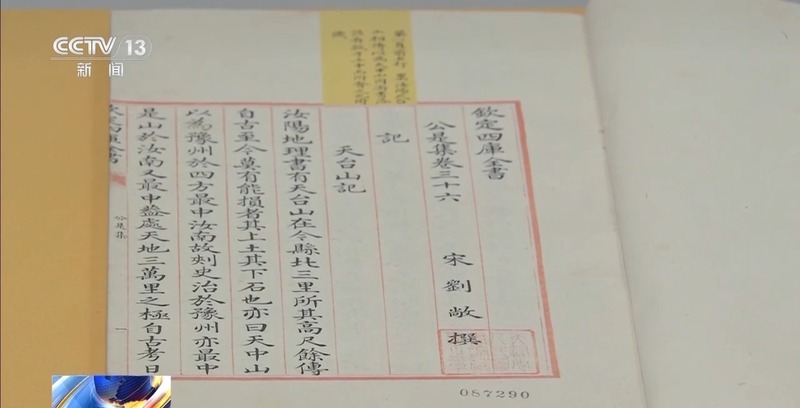 CCTV 13
新闻
欽定四庫全書
公是集卷三十六
宋 劉敞 撰
記
天台山記
汝陽地理書有天台山在今縣北三里所其高尺餘傳
自古至今莫有能損者其上土其下石也亦曰天中山
以為豫州於四方最中汝南故刺史治於豫州亦最中
是山於汝南又最中蓋處天地三萬里之極自古考日
欽定四庫全書
公是集
一
087290